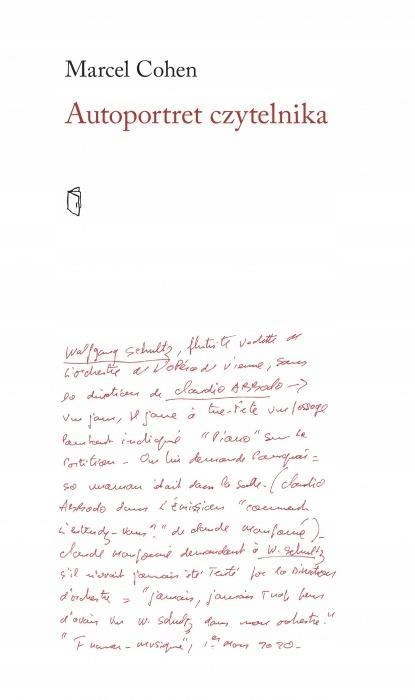 Marcel Cohen
Autoportret czytelnika
Wolfgang Schultz, flûtiste vedette de
l'orchestre de l'Opéra de Vienne, sous
la direction de Claudio Abbado →
un jour, il joue à tue-tête un passage
pourtant indiqué "Piano" sur la
partition - On lui demande pourquoi =
sa maman était dans la salle - (Claudio
Abbado dans l'émission "comment
l'entendez-vous?" de Claude Maupomé) -
Claude Maupomé demandant à W. Schultz
s'il n'avait jamais été tenté par la direction
d'orchestre = "jamais, jamais trop peur
d'avoir un W. Schultz dans mon orchestre."
"France-musique", 1er Mars 2020 -